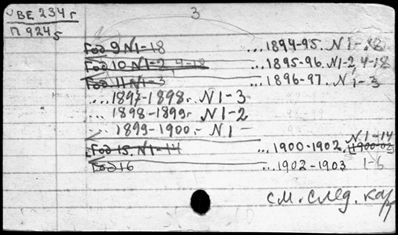 VBE 234г 3
П 9245
Год 9 N1-18 ...1894-95. N1-18
Год 10 N1-2, 4-18 ...1895-96. N1-2, 4-18
Год 11 N1-3 ...1896-97. N1-3
...1897-1898. N1-3
...1898-1899. N1-2
...1899-1900. N1-
N1-14
Год 15. N1-14 ...1900-1902. 1900-02
Год 16 ...1902-1903 1-6
см. след. кар